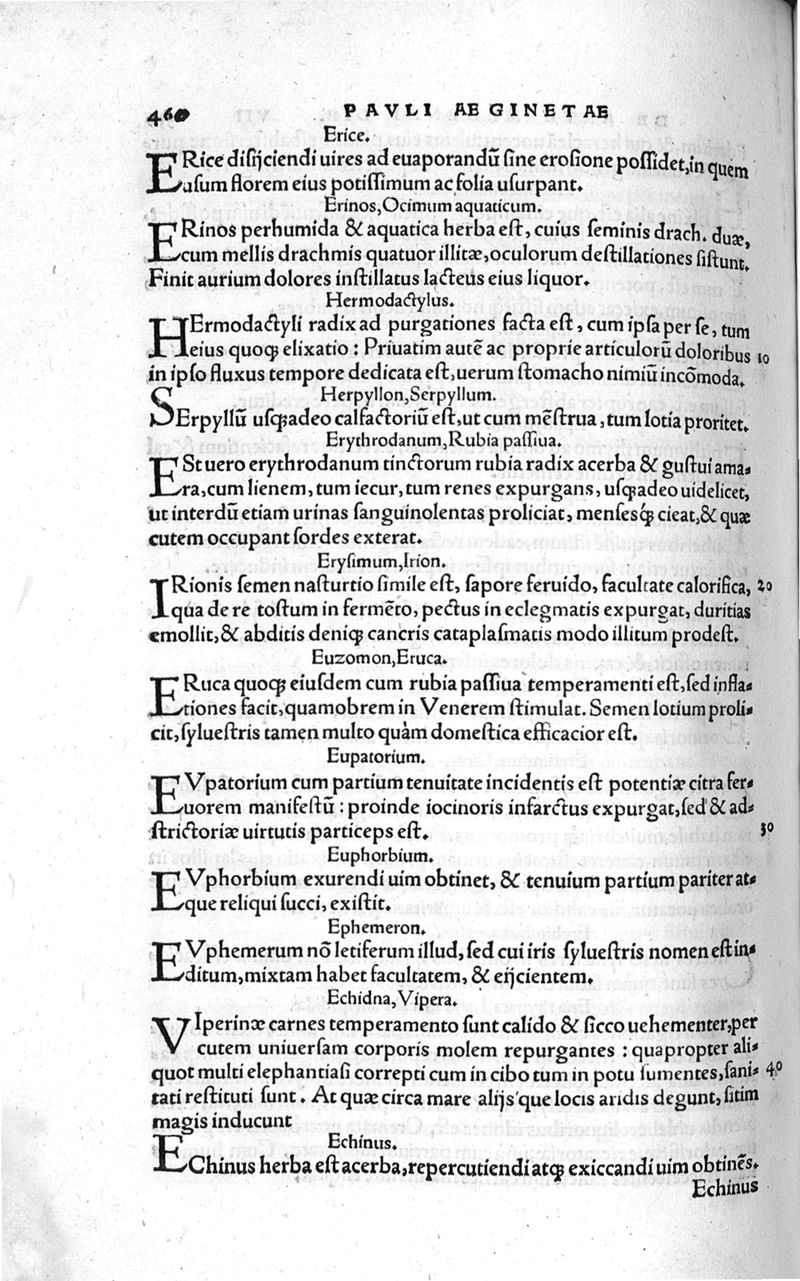 460 PAVLI AEGINETAE
Erice.
ERice disijciendi uires ad euaporandū sine erosione possidet, in quem
usum florem eius potissimum ac folia usurpant.
Erinos, Ocimum aquaticum.
ERinos perhumida & aquatica herba est, cuius seminis drach. duæ,
cum mellis drachmis quatuor illitæ, oculorum destillationes sistunt.
Finit aurium dolores instillatus lacteus eius liquor.
Hermodactylus.
HErmodactyli radix ad purgationes facta est, cum ipsa per se, tum
eius quoqꝫ elixatio: Priuatim autē ac proprie articulorū doloribus 10
in ipso fluxus tempore dedicata est, uerum stomacho nimiū incōmoda.
Herpyllon, Serpyllum.
SErpyllū usqꝫadeo calfactoriū est, ut cum mēstrua, tum lotia proritet.
Erythrodanum, Rubia passiua.
ESt uero erythrodanum tinctorum rubia radix acerba & gustui ama-
ra, cum lienem, tum iecur, tum renes expurgans, usqꝫadeo uidelicet,
ut interdū etiam urinas sanguinolentas proliciat, mensesqꝫ́ cieat, & quæ
cutem occupant sordes exterat.
Erysimum, Irion.
IRionis semen nasturtio simile est, sapore feruido, facultate calorifica, 20
qua de re tostum in fermēto, pectus in eclegmatis expurgat, duritias
emollit, & abditis deniqꝫ cancris cataplasmatis modo illitum prodest.
Euzomon, Eruca.
ERuca quoqꝫ eiusdem cum rubia passiua temperamenti est, sed infla-
tiones facit, quamobrem in Venerem stimulat. Semen lotium proli-
cit, syluestris tamen multo quàm domestica efficacior est.
Eupatorium.
EVpatorium cum partium tenuitate incidentis est potentiæ citra fer-
uorem manifestū: proinde iocinoris infarctus expurgat, sed & ad-
strictoriæ uirtutis particeps est. 30
Euphorbium.
EVphorbium exurendi uim obtinet, & tenuium partium pariter at-
que reliqui succi, existit.
Ephemeron.
EVphemerum nō letiferum illud, sed cui iris syluestris nomen est in-
ditum, mixtam habet facultatem, & eijcientem.
Echidna, Vipera.
VIperinæ carnes temperamento sunt calido & sicco uehementer, per
cutem uniuersam corporis molem repurgantes: quapropter ali-
quot multi elephantiasi correpti cum in cibo tum in potu sumentes, sani- 40
tati restituti sunt. At quæ circa mare alijs que locis aridis degunt, sitim
magis inducunt
Echinus.
EChinus herba est acerba, repercutiendi atqꝫ exiccandi uim obtinēs.
Echinus